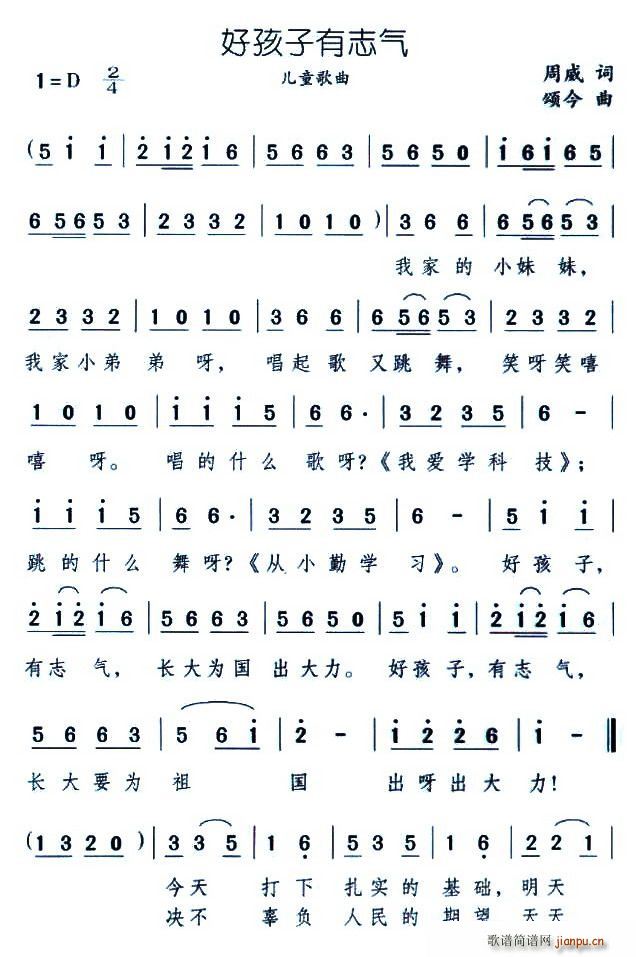 好孩子有志气
1=D 2/4 儿童歌曲 周威 词
颂今 曲
(5 i i | 2 i 2 i 6 | 5 6 6 3 | 5 6 5 0 | i 6 i 6 5 |
6 5 6 5 3 | 2 3 3 2 | 1 0 1 0 ) | 3 6 6 | 6 5 6 5 3 |
我家的 小妹 妹,
2 3 3 2 | 1 0 1 0 | 3 6 6 | 6 5 6 5 3 | 2 3 3 2 |
我家小弟 弟 呀, 唱起歌 又跳 舞, 笑呀笑嘻
1 0 1 0 | i i i 5 | 6 6 · | 3 2 3 5 | 6 - |
嘻 呀。 唱的什么 歌呀?《我爱学科 技》;
i i i 5 | 6 6 · | 3 2 3 5 | 6 - | 5 i i |
跳的什么 舞呀?《从小勤学 习》。 好孩子,
2 i 2 i 6 | 5 6 6 3 | 5 6 5 0 | 5 i i | 2 i 2 i 6 |
有志 气, 长大为国 出大力。 好孩子,有志 气,
5 6 6 3 | 5 6 i | 2 - | i 2 2 6 | i - ‖
长大要为 祖 国 出呀出大 力!
(1 3 2 0 ) | 3 3 5 | 1 6 | 5 3 5 | 1 6 | 2 2 1 |
今天 打下 扎实的 基础, 明天
决不 辜负 人民的 期望 天天
歌谱简谱网
jianpu.cn